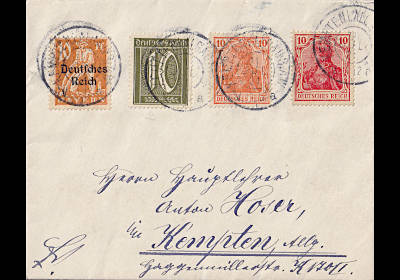 10
Deutsches
Reich
Deutsches Reich
10
10 10
DEUTSCHES REICH
10 10
DEUTSCHES REICH
Herrn Hauptlehrer
Anton Hoser,
in
Kempten, Allg.
Haggenmüllerstr.